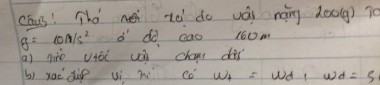 Câu3: Thả rơi tự do vật nặng 200(g) 
g = 10m/s² ở độ cao 160m
a) vật chạm đất
b) xác định vị trí có Wt = Wđ, Wđ =